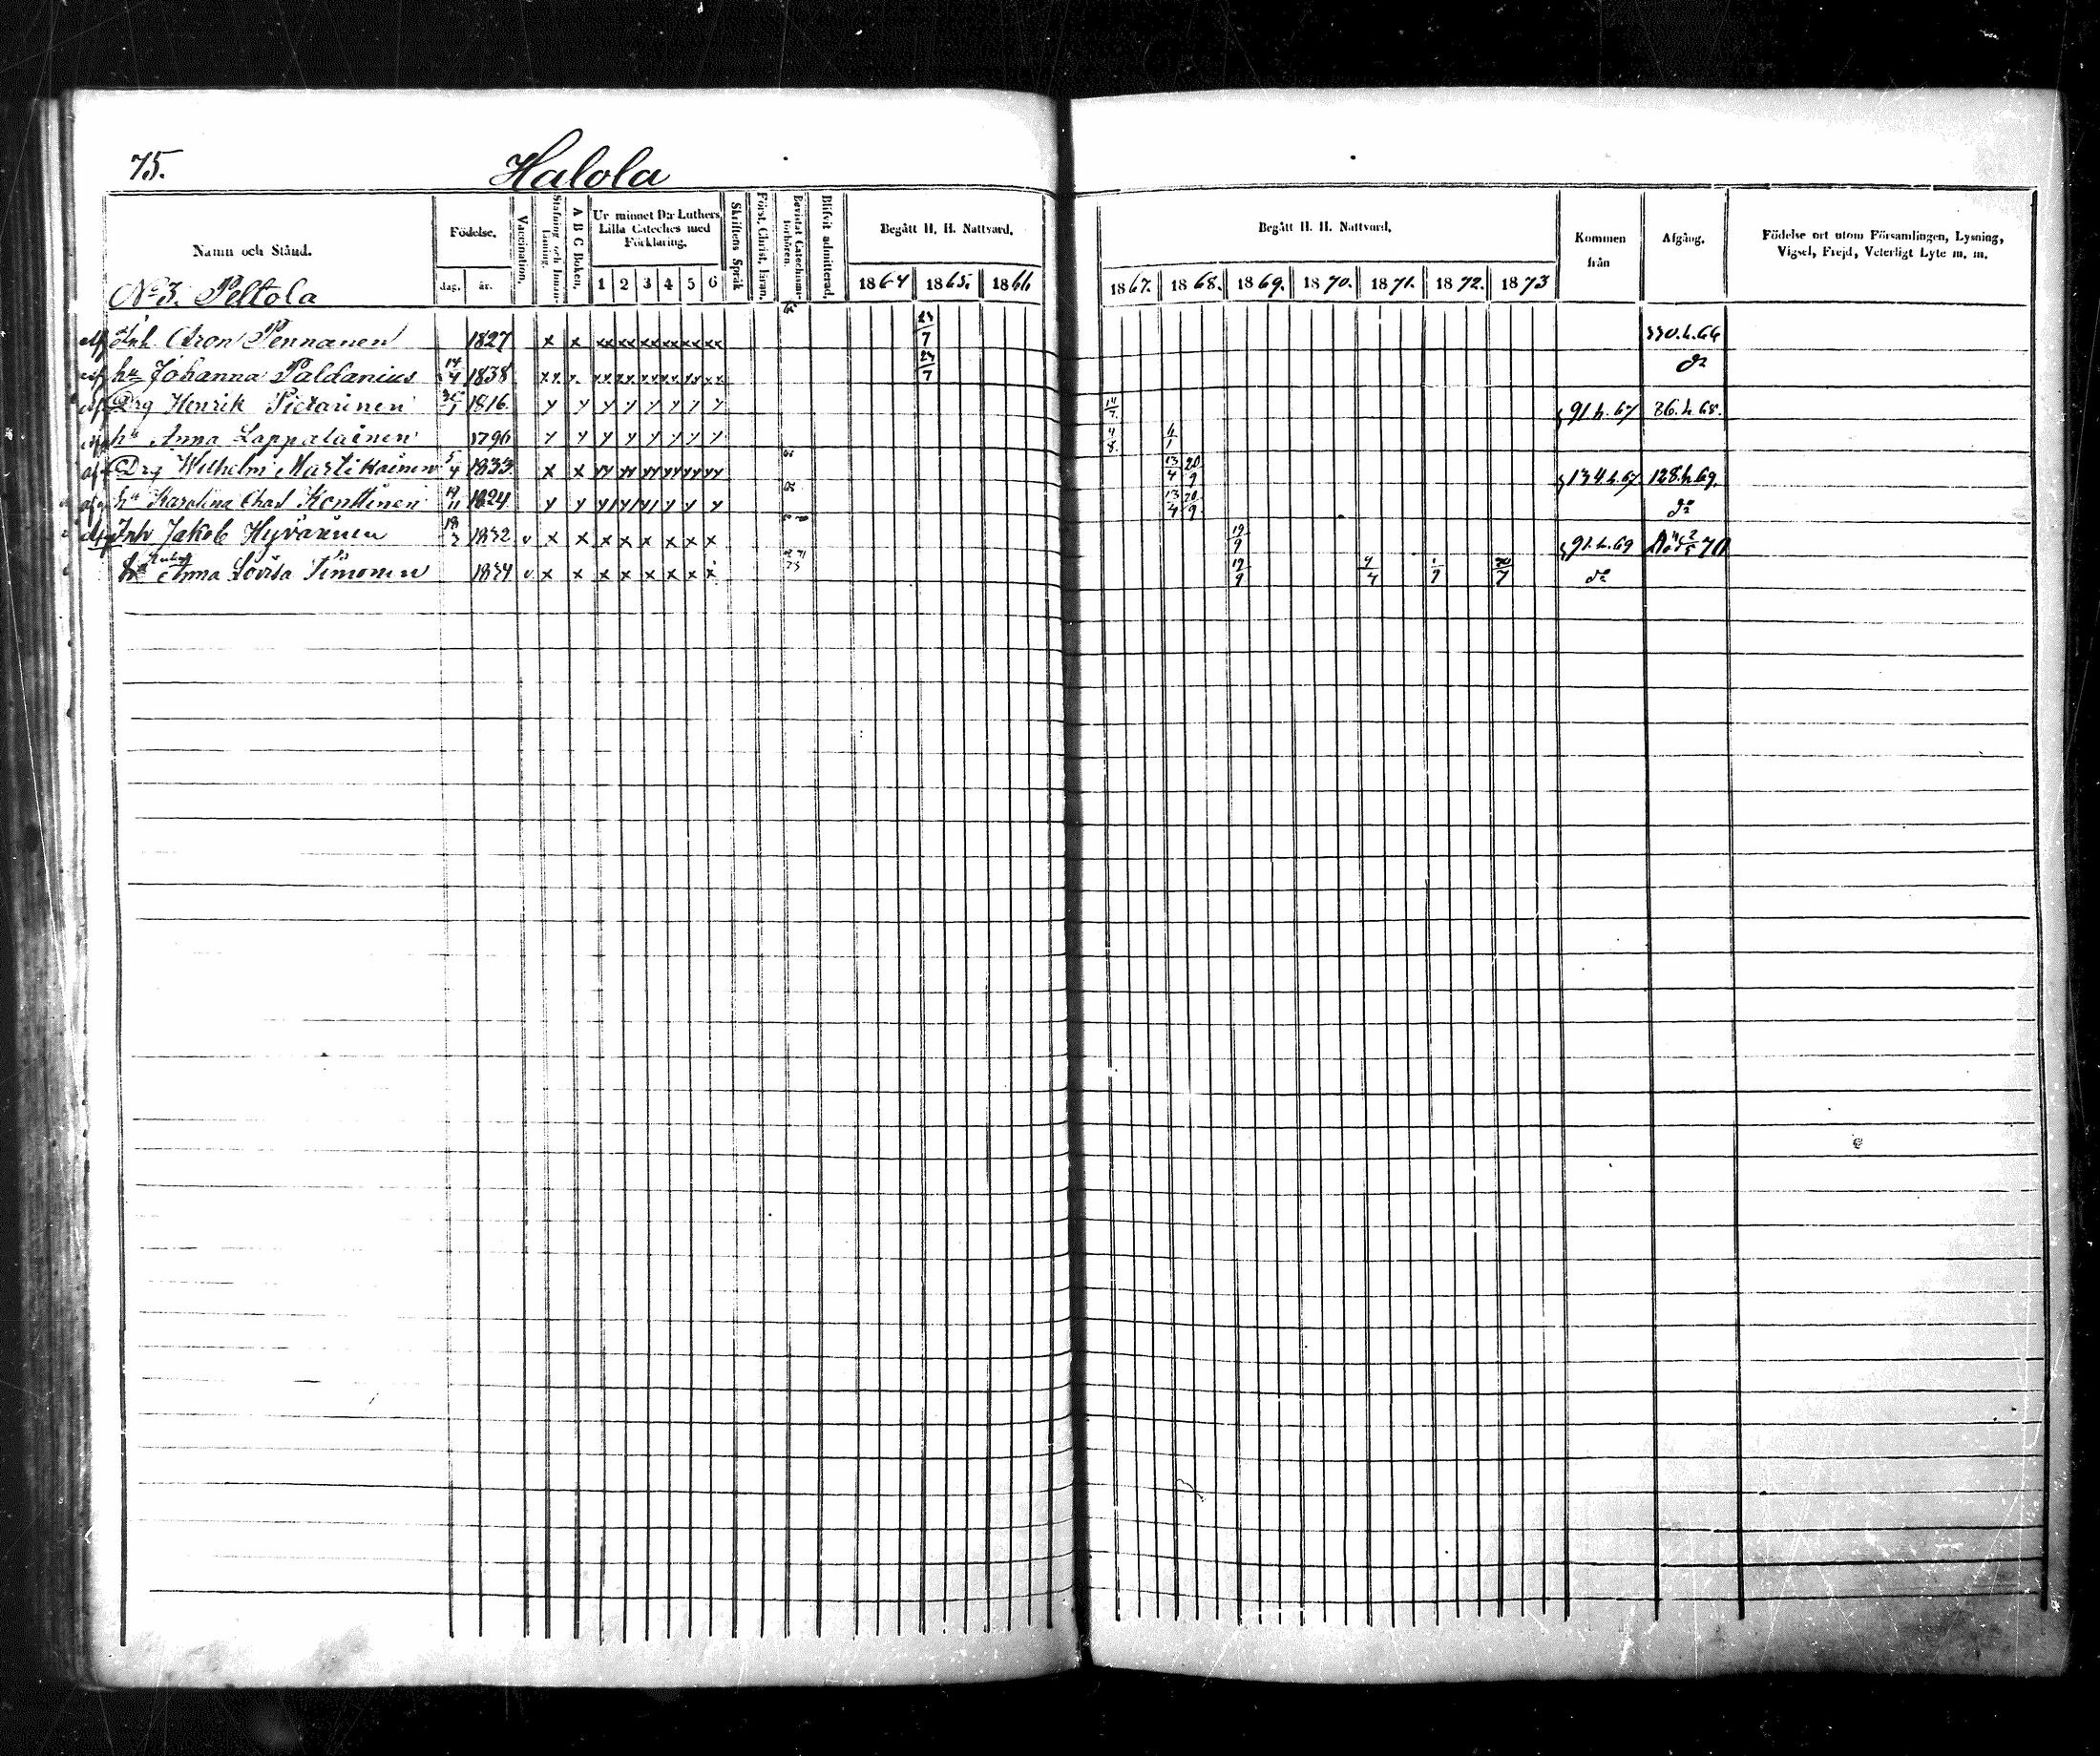 75. Halola
Namn och Stånd. Födelse. Vaccination. Stafning och Innanläsning. A B C Boken. Ur minnet D:r Luthers Lilla Cateches med Förklaring. Skriftens Språk Först. Christ. läran. Bevistat Catechismiförhören. Blifvit admitterad. Begått H. H. Nattvard. Begått H. H. Nattvard. Kommen från Afgång. Födelse ort utom Församlingen, Lysning, Vigsel, Frejd, Veterligt Lyte m. m.
dag. år. 1 2 3 4 5 6 1864 1865. 1866 1867. 1868. 1869. 1870. 1871. 1872. 1873
No 3. Peltola
Inh. Aron Pennanen 1827 x x xx xx xx xx xx xx 23/7 330.h.66
hu Johanna Paldanius 14/4 1838 23/7 do
Drg Henrik Pietarinen 1816. y y y y y y y y 14/7. 91.h.67 86.h.68.
hu Anna Lappalainen 1796 y y y y y y y y 4/8. 6/1
Drg Wilhelm Martikainen 5/4 1833 x x yy yy yy yy yy yy 13/4 20/9 134.h.67. 128.h.69.
hu Karolina Charl Konttinen 1824 13/4 20/9 do
Inh Jakob Hyvärinen 18/3 1832 v x x x x x x x x 19/9 91.h.69 70
hu Enka Anna Lovisa Timonen 1834 v x x x x x x x x 19/9 4/4 1/7 20/7 do